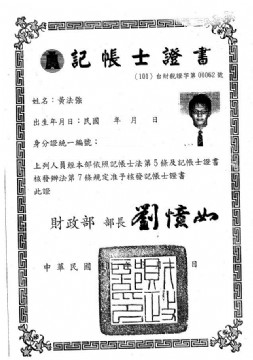 記帳士證書
(101) 台財稅證字第00062號
姓名：黃法強
出生年月日：民國　年　月　日
身分證統一編號：
上列人員經本部依照記帳士法第5條及記帳士證書
核發辦法第7條規定准予核發記帳士證書
此證
財政部 部長 劉憶如
中華民國　日